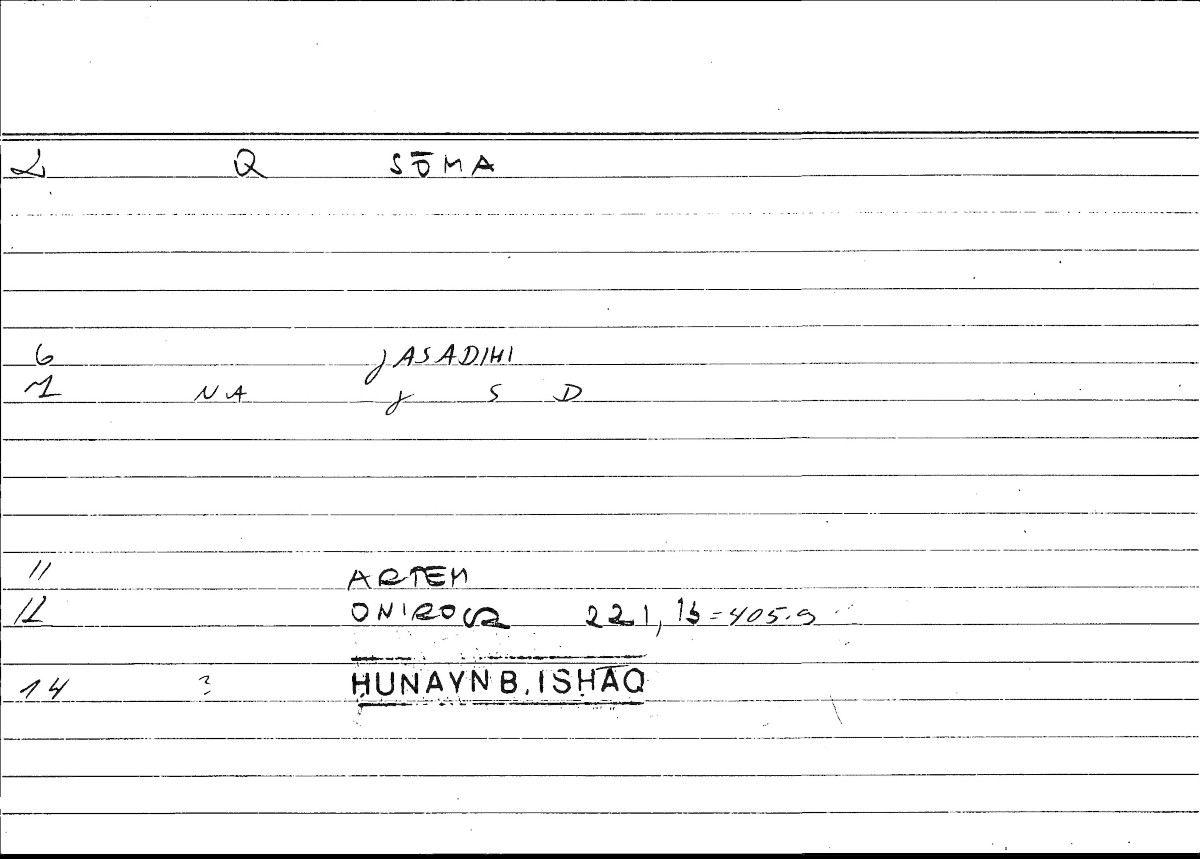 2 Q SŌMA
6 JASADIHI
7 NA J S D
11 ARTEM
12 ONIROCR 221, 13 = 405.9
14 ? ḤUNAYN B. ISḤĀQ